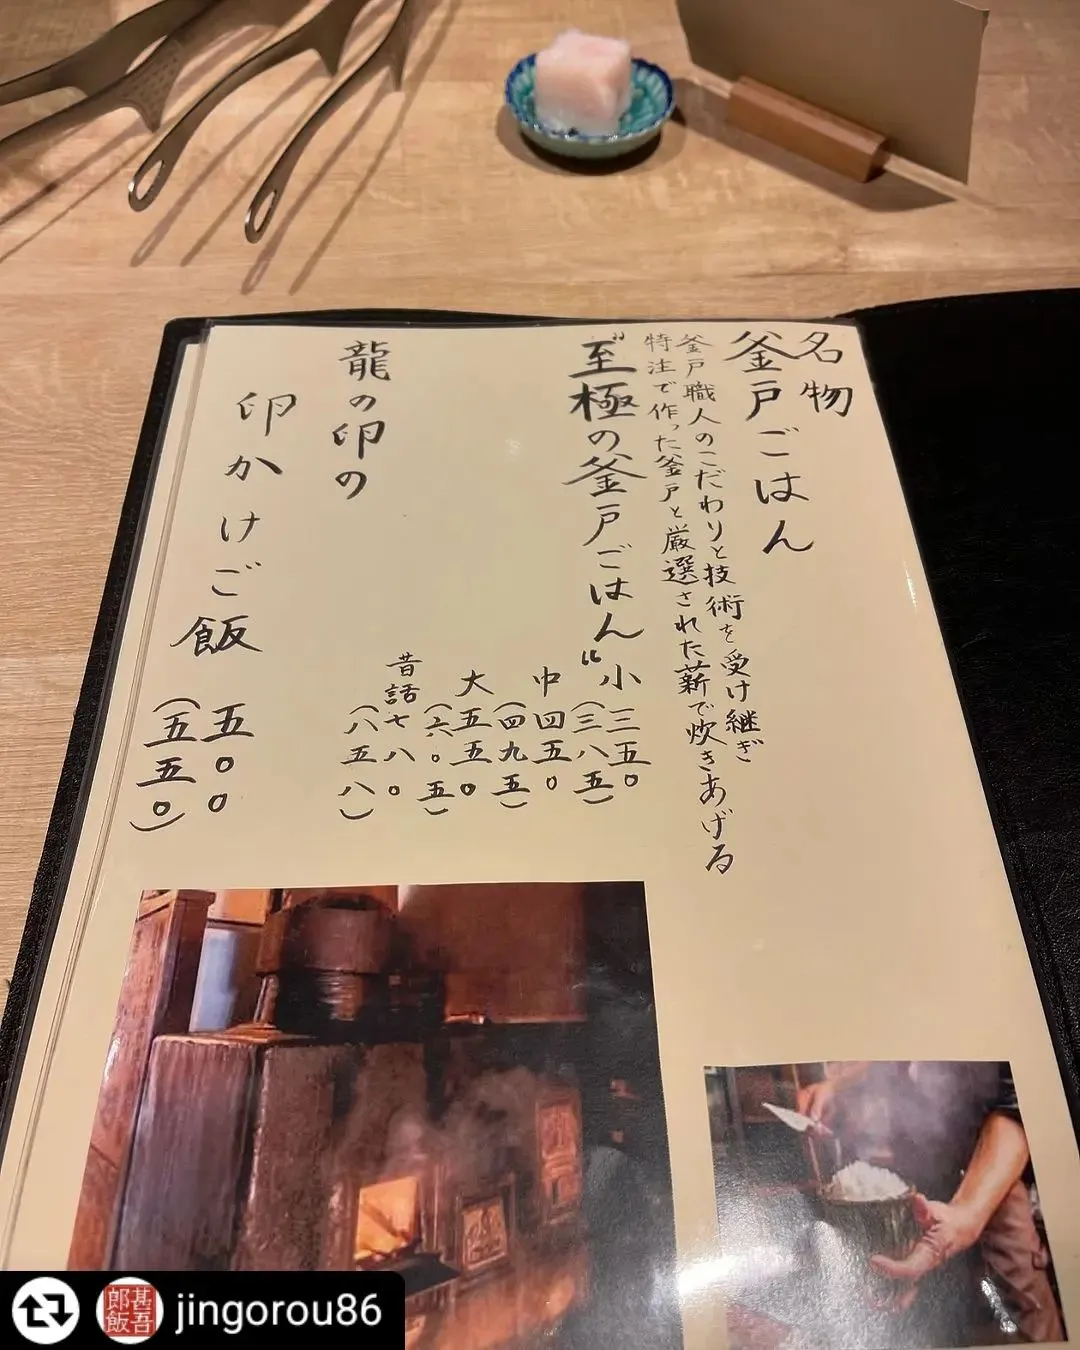 名物
釜戸ごはん
釜戸職人のこだわりと技術を受け継ぎ
特注で作った釜戸と厳選された薪で炊きあげる
"至極の釜戸ごはん"
小 三五〇
(三八五)
中 四五〇
(四九五)
大 五五〇
(六〇五)
昔話 七八〇
(八五八)
龍の卵の
卵かけご飯
五〇〇
(五五〇)
甚吾
郎飯
jingorou86